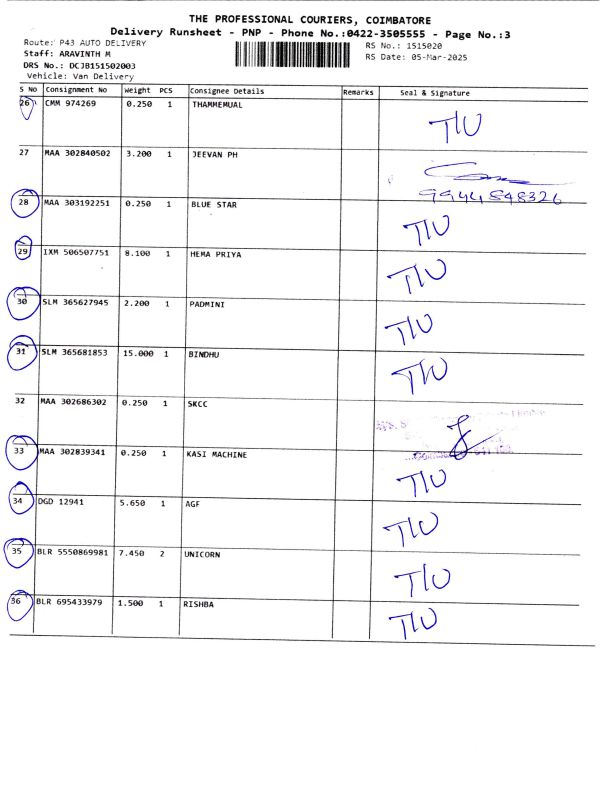 THE PROFESSIONAL COURIERS, COIMBATORE
Delivery Runsheet - PNP - Phone No.:0422-3505555 - Page No.:3
Route: P43 AUTO DELIVERY
RS No.: 1515020
Staff: ARAVINTH M
RS Date: 05-Mar-2025
DRS No.: DCJB151502003
Vehicle: Van Delivery
S No Consignment No Weight PCS Consignee Details Remarks Seal & Signature
26 CMM 974269 0.250 1 THAMMEMUAL
T/U
27 MAA 302840502 3.200 1 JEEVAN PH
9944548326
28 MAA 303192251 0.250 1 BLUE STAR
T/U
29 IXM 506507751 8.100 1 HEMA PRIYA
T/U
30 SLM 365627945 2.200 1 PADMINI
T/U
31 SLM 365681853 15.000 1 BINDHU
T/U
32 MAA 302686302 0.250 1 SKCC
33 MAA 302839341 0.250 1 KASI MACHINE
T/U
34 DGD 12941 5.650 1 AGF
T/U
35 BLR 5550869981 7.450 2 UNICORN
T/U
36 BLR 695433979 1.500 1 RISHBA
T/U